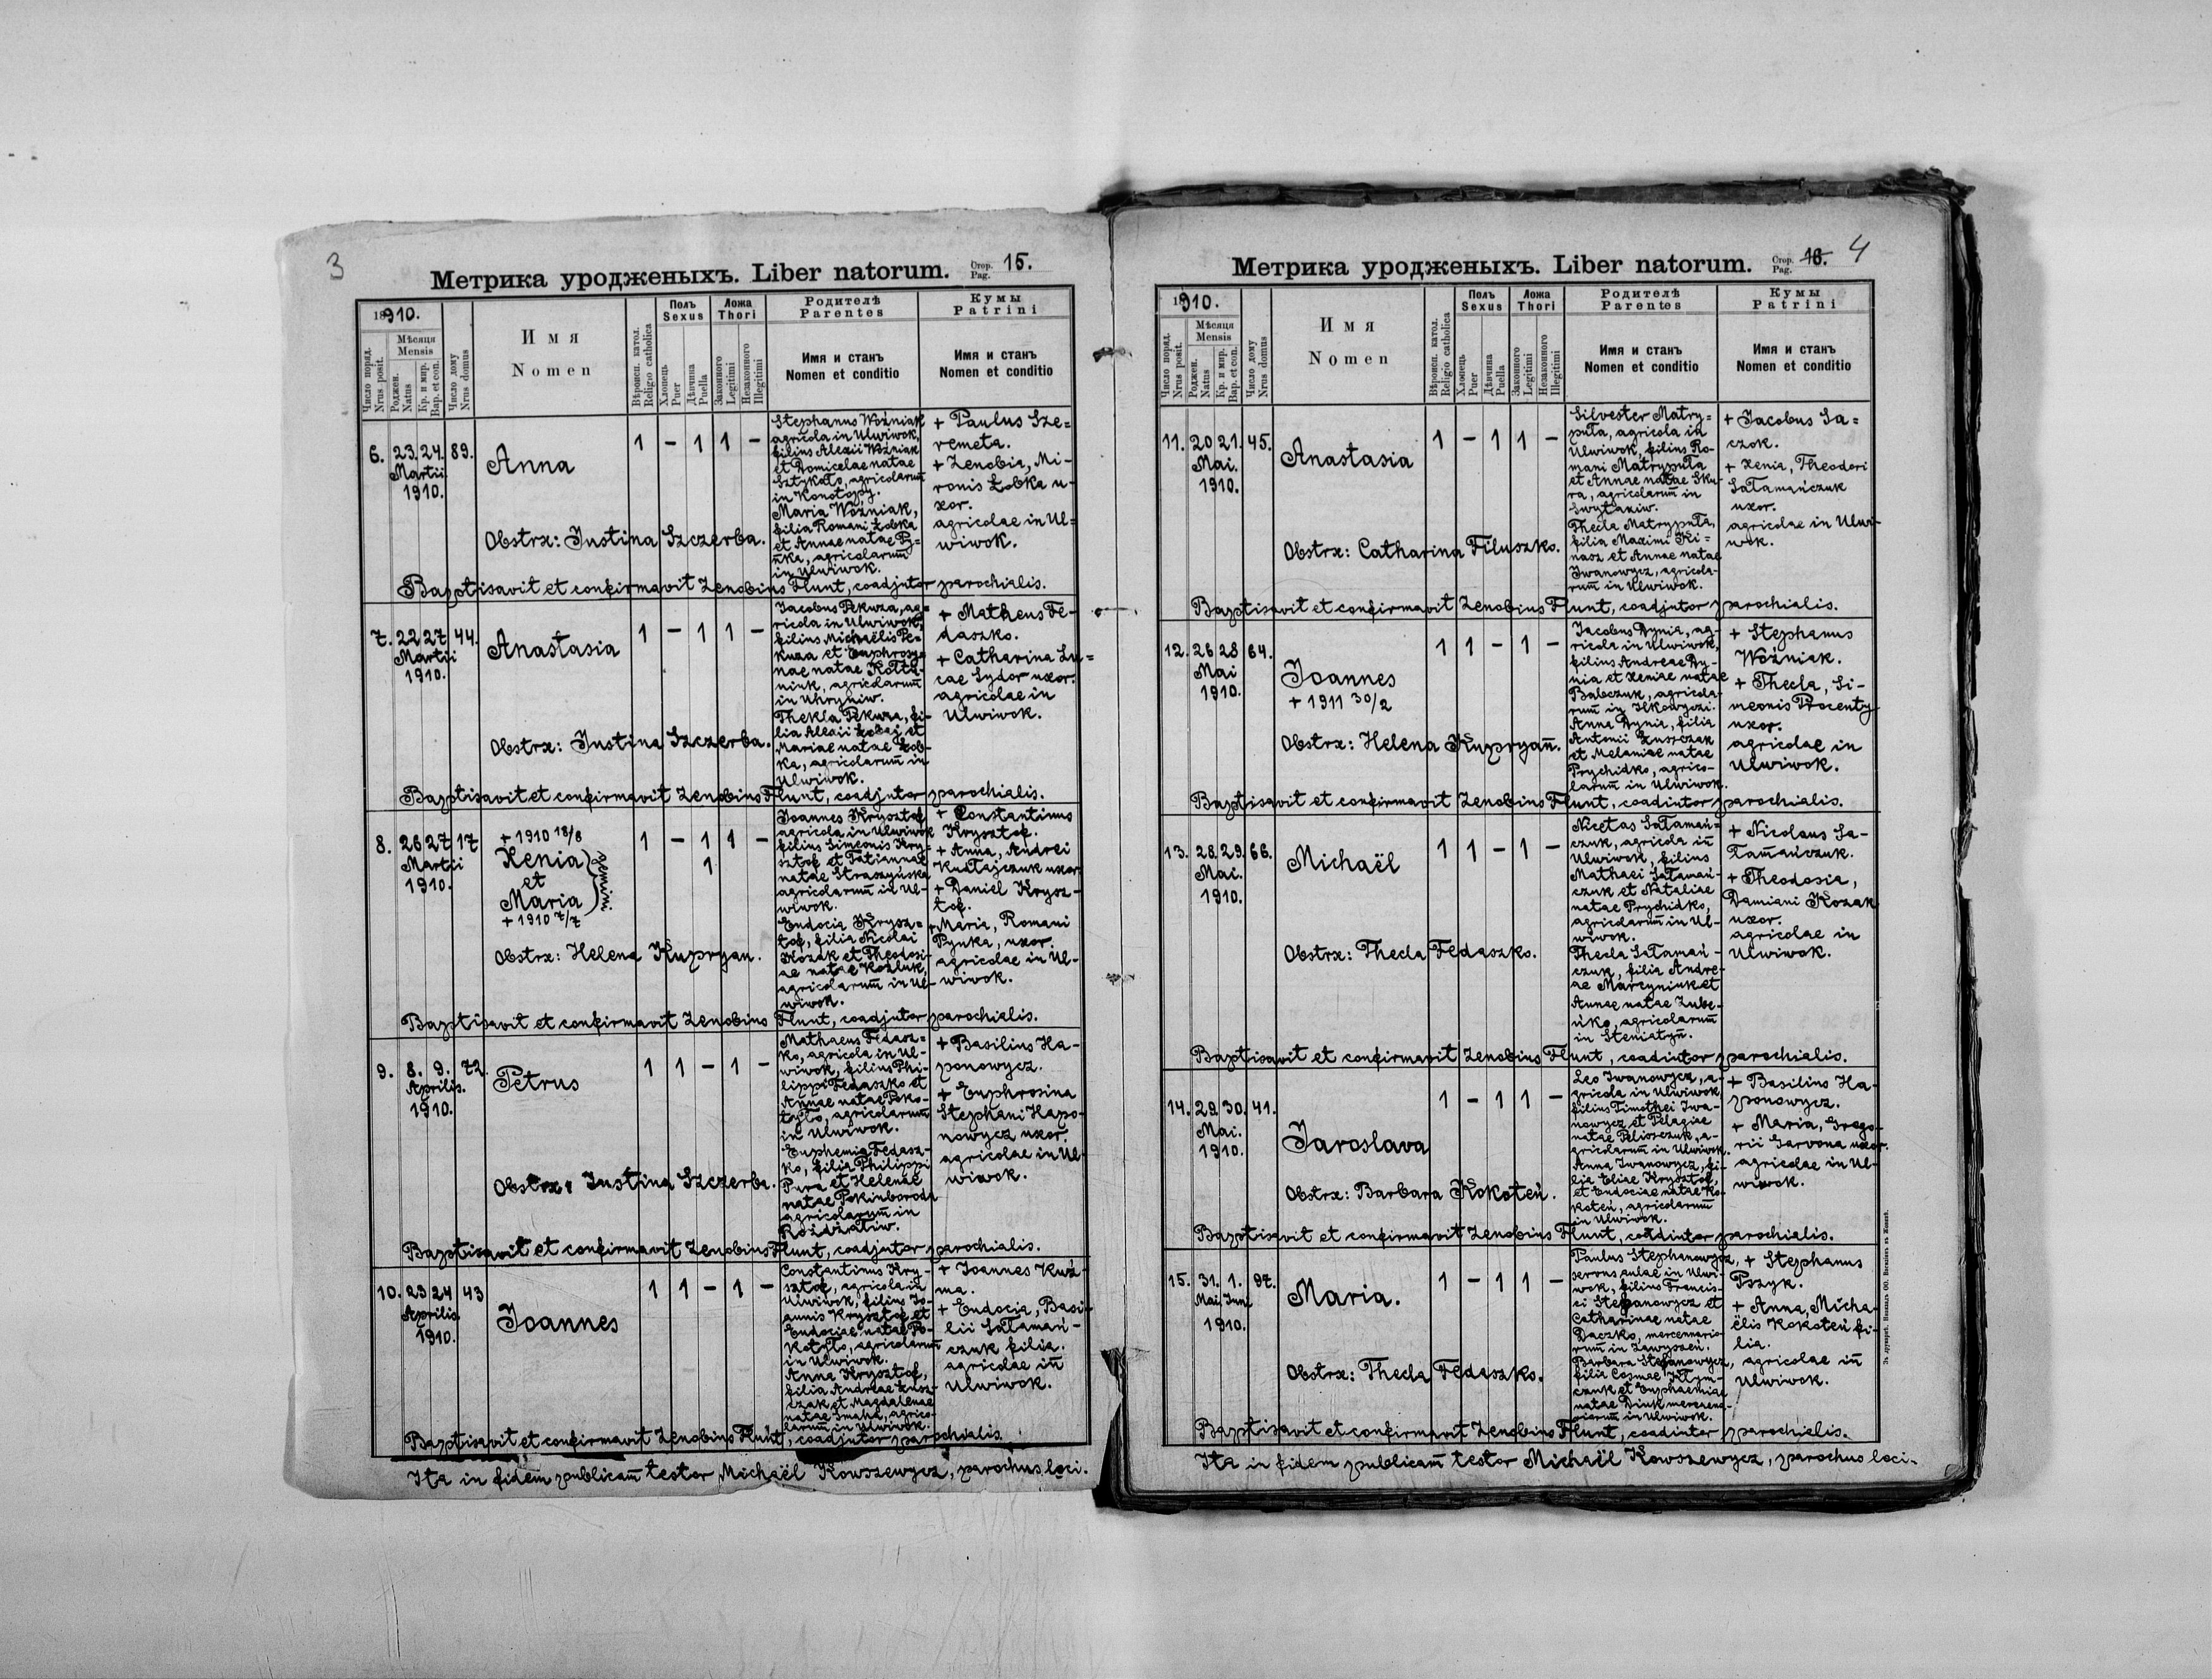 3
Метрика уродженыхъ. Liber natorum. Стор. Pag. 15.
1910.
Число поряд. Nrus posit.
Мѣсяця Mensis
Роджен. Natus
Кр. и мир. Bap. et con.
Число дому Nrus domus
Имя
Nomen
Вѣроисп. катол. Religio catholica
Полъ Sexus
Хлопець Puer
Дѣвчина Puella
Ложа Thori
Законного Legitimi
Незаконного Illegitimi
Родителѣ Parentes
Имя и станъ Nomen et conditio
Кумы Patrini
Имя и станъ Nomen et conditio
6. 23. 24. 89.
Martii
1910.
Anna
1 – 1 1 –
Obstrx: Justina Szczerba.
Stephanus Woźniak
agricola in Ulwiwok,
filius Alexii Woźniak
et Domicelae natae
Sztykało, agricolarum
in Konotopy.
Maria Woźniak,
filia Romani Łobka
et Annae natae Py=
nka, agricolarum
in Ulwiwok.
+ Paulus Sze=
remeta.
+ Zenobia, Mi-
ronis Łobka u-
xor.
agricolae in Ul=
wiwok.
Baptisavit et confirmavit Zenobius Flunt, coadjutor parochialis.
7. 22 27 44.
Martii
1910.
Anastasia
1 – 1 1 –
Obstrx: Justina Szczerba.
Jacobus Pekura, ag=
ricola in Ulwiwok,
filius Michaëlis Pe=
kura et Euphrosy=
nae natae Kołtu-
niuk, agricolarum
in Uhryniw.
Thekla Pekura, fi-
lia Alexii Łobaj et
Mariae natae Łob-
ka, agricolarum in
Ulwiwok.
+ Matheus Fe-
daszko.
+ Catharina Lu=
cae Sydor uxor.
agricolae in
Ulwiwok.
Baptisavit et confirmavit Zenobius Flunt, coadjutor parochialis.
8. 26 27 17
Martii
1910.
+ 1910 18/8
Xenia
et
Maria
gemini
+ 1910 7/7
1 – 1 1 –
1
Obstrx: Helena Kupryan.
Joannes Krysztof
agricola in Ulwiwok
filius Simeonis Kry-
sztof et Tatiannae
natae Straszyńska
agricolarum in Ul-
wiwok.
Eudocia Krysz=
tof, filia Nicolai
Kozak et Theodosi-
ae natae Kozluk,
agricolarum in Ul-
wiwok.
+ Constantinus
Krysztof.
+ Anna, Andrei
Kułajczuk uxor
+ Daniel Krysz-
tof.
+ Maria, Romani
Pynka, uxor.
agricolae in Ul-
wiwok.
Baptisavit et confirmavit Zenobius Flunt, coadjutor parochialis.
9. 8. 9. 72.
Aprilis.
1910.
Petrus
1 1 – 1 –
Obstrx: Justina Szczerba.
Mathaeus Fedasz-
ko, agricola in Ul-
wiwok, filius Phi-
lippi Fedaszko et
Annae natae Poko-
tyło, agricolarum
in Ulwiwok.
Euphemia Fedasz-
ko, filia Philippi
Pura et Helenae
natae Pokinboroda
agricolarum in
Rożdżaliw.
+ Basilius Ha-
ponowycz.
+ Euphrosina
Stephani Hapo-
nowycz uxor.
agricolae in Ul-
wiwok.
Baptisavit et confirmavit Zenobius Flunt, coadjutor parochialis.
10. 23 24 43
Aprilis
1910.
Joannes
1 1 – 1 –
Constantinus Kry-
sztof, agricola in
Ulwiwok, filius Jo-
annis Krysztof et
Eudociae natae Po-
kotyło, agricolarum
in Ulwiwok.
Anna Krysztof,
filia Andreae Łusz-
czak et Magdalenae
natae Smaha, agrico-
larum in Ulwiwok.
+ Joannes Kuź-
ma.
+ Eudocia, Basi-
lii Sałamań-
czuk filia.
agricolae in
Ulwiwok.
Baptisavit et confirmavit Zenobius Flunt, coadjutor parochialis.
Ita in fidem publicam testor Michaël Kowszewycz, parochus loci.
4
Метрика уродженыхъ. Liber natorum. Стор. Pag. 16.
1910.
Число поряд. Nrus posit.
Мѣсяця Mensis
Роджен. Natus
Кр. и мир. Bap. et con.
Число дому Nrus domus
Имя
Nomen
Вѣроисп. катол. Religio catholica
Полъ Sexus
Хлопець Puer
Дѣвчина Puella
Ложа Thori
Законного Legitimi
Незаконного Illegitimi
Родителѣ Parentes
Имя и станъ Nomen et conditio
Кумы Patrini
Имя и станъ Nomen et conditio
11. 20 21. 45.
Mai.
1910.
Anastasia
1 – 1 1 –
Obstrx: Catharina Filuszko.
Silvester Matry=
puła, agricola in
Ulwiwok, filius Ro-
mani Matrypuła
et Annae natae Sku-
ra, agricolarum in
Swytaziw.
Thecla Matrypuła,
filia Maximi Ki-
nasz et Annae natae
Iwanowycz, agricola-
rum in Ulwiwok.
+ Jacobus Sa=
czok.
+ Xenia, Theodori
Sałamańczuk
uxor.
agricolae in Ulwi-
wok.
Baptisavit et confirmavit Zenobius Flunt, coadjutor parochialis.
12. 26 28 64.
Mai
1910.
Joannes
+ 1911 30/2
1 1 – 1 –
Obstrx: Helena Kupryan.
Jacobus Dynia, ag-
ricola in Ulwiwok,
filius Andreae Dy-
nia et Xeniae natae
Babczuk, agricola-
rum in Ilkowyczi.
Anna Dynia, filia
Antonii Łuszczak
et Melaniae natae
Prychidko, agrico-
larum in Ulwiwok.
+ Stephanus
Woźniak.
+ Thecla, Si-
meonis Procenty
uxor.
agricolae in
Ulwiwok.
Baptisavit et confirmavit Zenobius Flunt, coadiutor parochialis.
13. 28. 29. 66.
Mai.
1910.
Michaël
1 1 – 1 –
Obstrx: Thecla Fedaszko.
Nicetas Sałamań=
czuk, agricola in
Ulwiwok, filius
Mathaei Sałamań-
czuk et Nataliae
natae Prychidko,
agricolarum in Ul-
wiwok.
Thecla Sałamań-
czuk, filia Andre-
ae Marcyniuk et
Annae natae Zube-
ńko, agricolarum
in Steniatyn.
+ Nicolaus Sa-
łamańczuk.
+ Theodosia,
Damiani Kozak
uxor.
agricolae in
Ulwiwok.
Baptisavit et confirmavit Zenobius Flunt, coadiutor parochialis.
14. 29. 30. 41.
Mai.
1910.
Jaroslava
1 – 1 1 –
Obstrx: Barbara Kokoteń.
Leo Iwanowycz, a-
gricola in Ulwiwok
filius Timothei Iwa-
nowycz et Pelagiae
natae Peliszczuk, a-
gricolarum in Ulwiwok.
Anna Iwanowycz, fi-
lia Eliae Krysztof,
et Eudociae natae Ko-
koteń, agricolarum
in Ulwiwok.
+ Basilius Ha-
ponowycz.
+ Maria, Grego-
rii Garvona uxor.
agricolae in Ul-
wiwok.
Baptisavit et confirmavit Zenobius Flunt, coadiutor parochialis.
15. 31. 1. 97.
Mai. Juni
1910.
Maria.
1 – 1 1 –
Obstrx: Thecla Fedaszko.
Paulus Stephanowycz,
servus aulae in Ulwi-
wok, filius Francis-
ci Stephanowycz et
Catharinae natae
Daczko, mercenario-
rum in Zawyszeń.
Barbara Stefanowycz,
filia Cosmae Klym-
czuk et Euphaemiae
natae Diuk mercena-
riorum in Ulwiwok.
+ Stephanus
Pszyk.
+ Anna, Micha-
ëlis Kokoteń fi-
lia.
agricolae in
Ulwiwok.
Baptisavit et confirmavit Zenobius Flunt, coadiutor parochialis.
Ita in fidem publicam testor Michaël Kowszewycz, parochus loci.